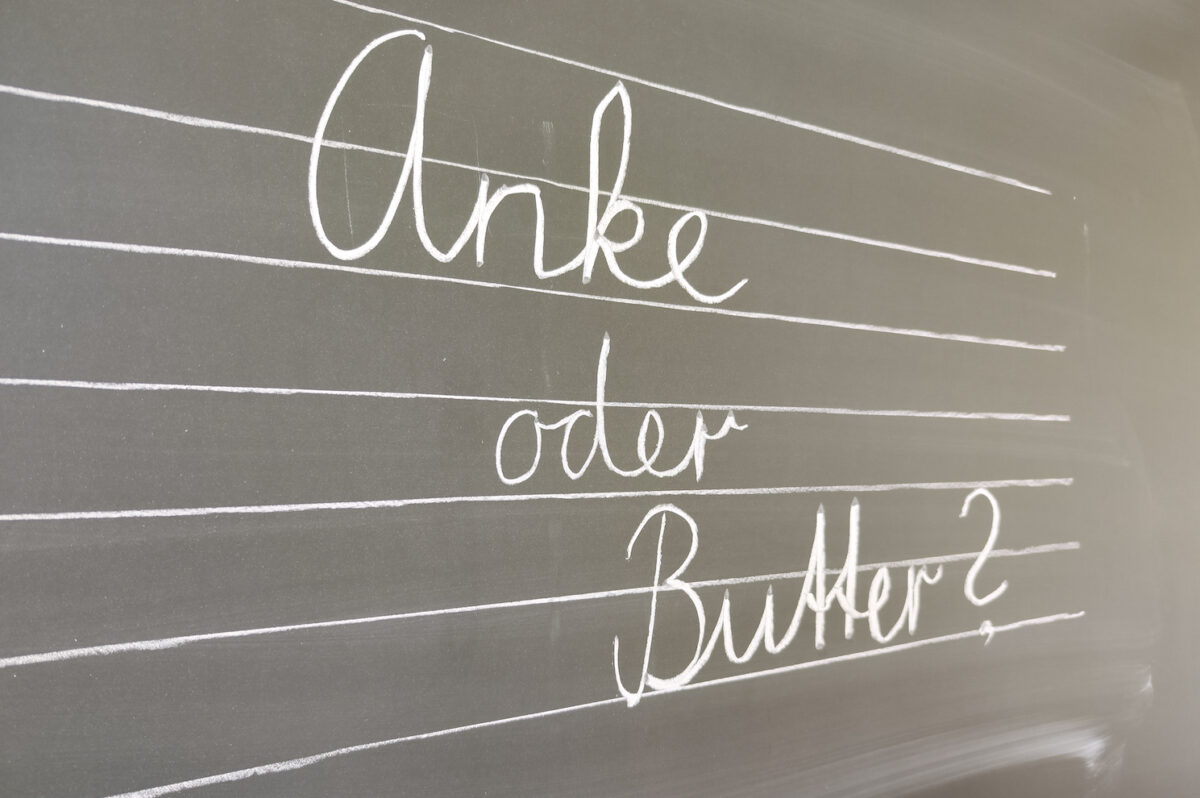 Anke
oder
Butter?